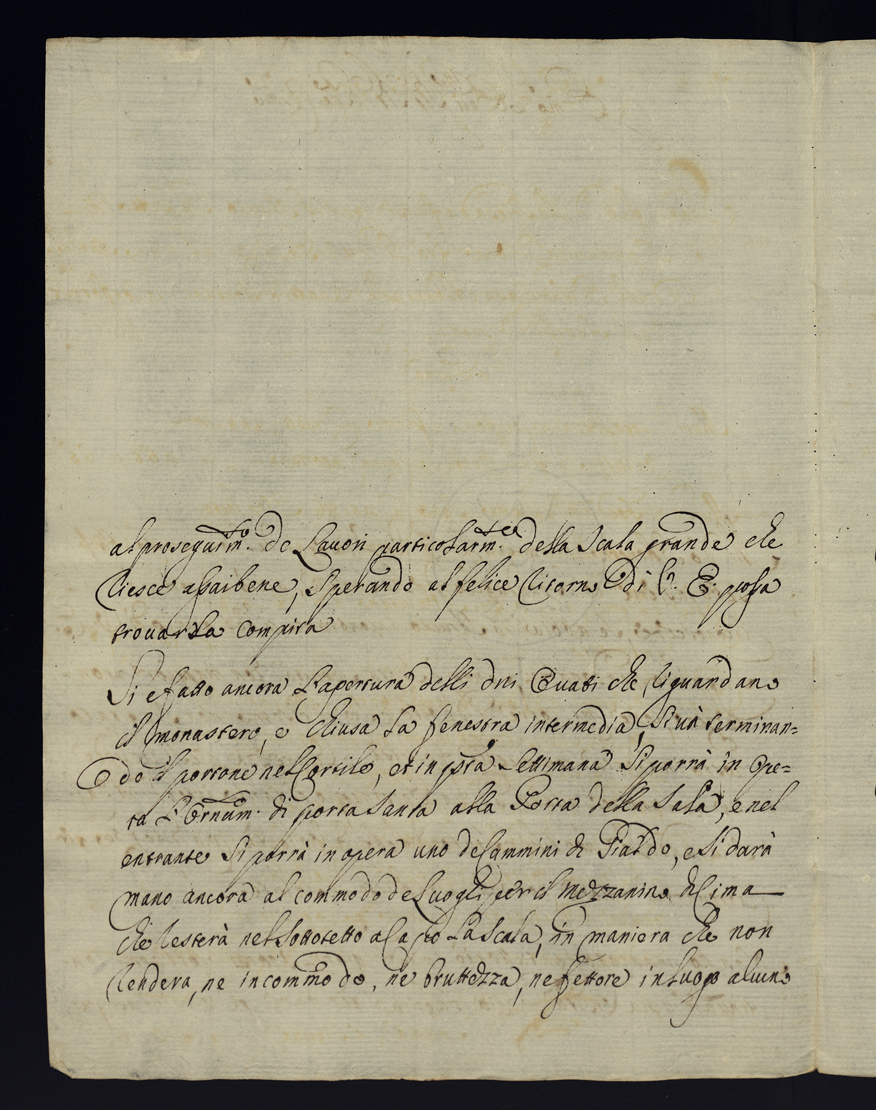 al proseguim.to de Lauori particolarm.te della Scala grande che
riesce assai bene, sperando al felice ritorno di V. E. possa
trouarla compita
Si è fatto ancora l'apertura delli dui Quatti che riguardano
il monastero, e chiusa la fenestra intermedia, si uà terminan=
do il portone nel Cortile, et in p̃sta Settimana si porrà in Ope=
ra l'Ornam. di porta Santa alla Porta della Sala, e nel
entrante si porrà in opera uno de Cammini di Giallo, e si darà
mano ancora al commodo de Luoghi per il mezzanino di Cima
che resterà nel sottotetto a Capo La Scala, in maniera che non
renderà, ne incommodo, ne bruttezza, ne fettore in luogo alcuno